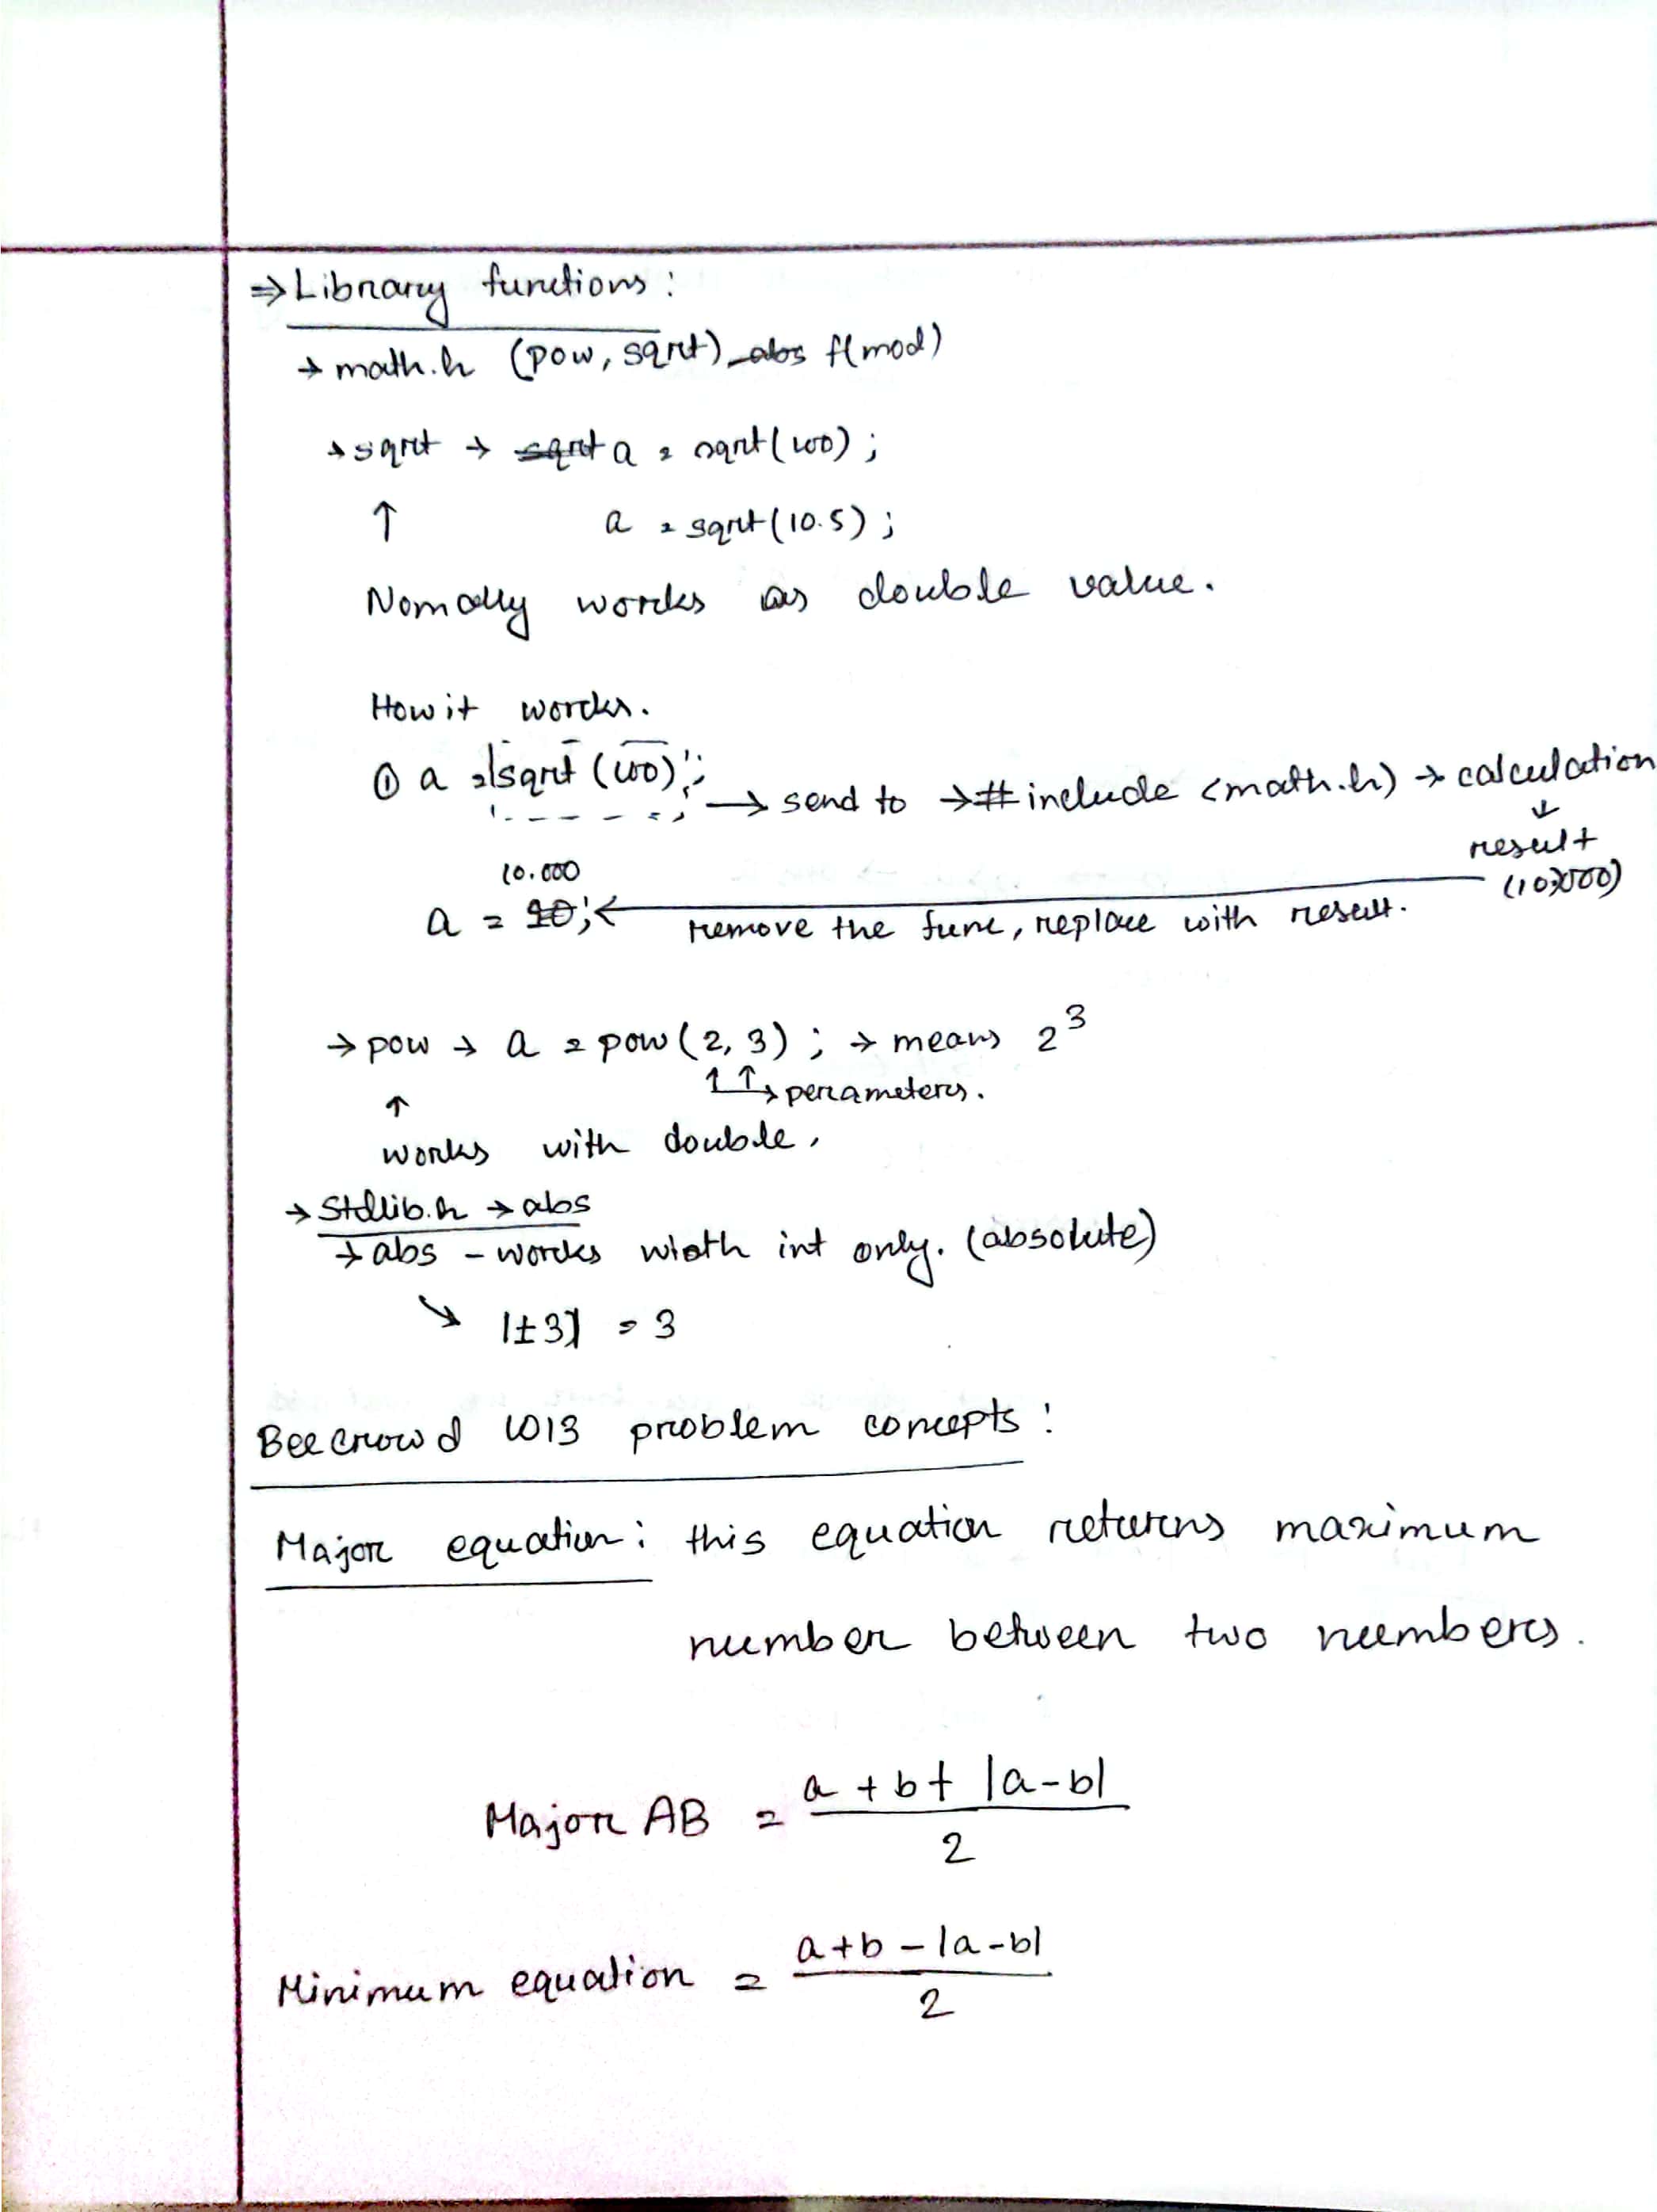 ⇒ Library functions:
→ math.h (pow, sqrt) abs f(mod)
→ sqrt → sqrt a = sqrt(100);
↑ a = sqrt(10.5);
Nomally works as double value.
How it works.
① a = sqrt(100); → send to → #include <math.h) → calculation
↓
result
(10.000)
10.000
a = 10; ← remove the func, replace with result.
→ pow → a = pow(2, 3); → means 2³
↑ ↑ → perameters.
↑
works with double,
→ Stdlib.h → abs
→ abs - works with int only. (absolute)
↘ |±3| = 3
Beecrowd 1013 problem concepts:
Major equation: this equation returns maximum
number between two numbers.
Major AB = (a + b + |a-b|) / 2
Minimum equation = (a+b - |a-b|) / 2